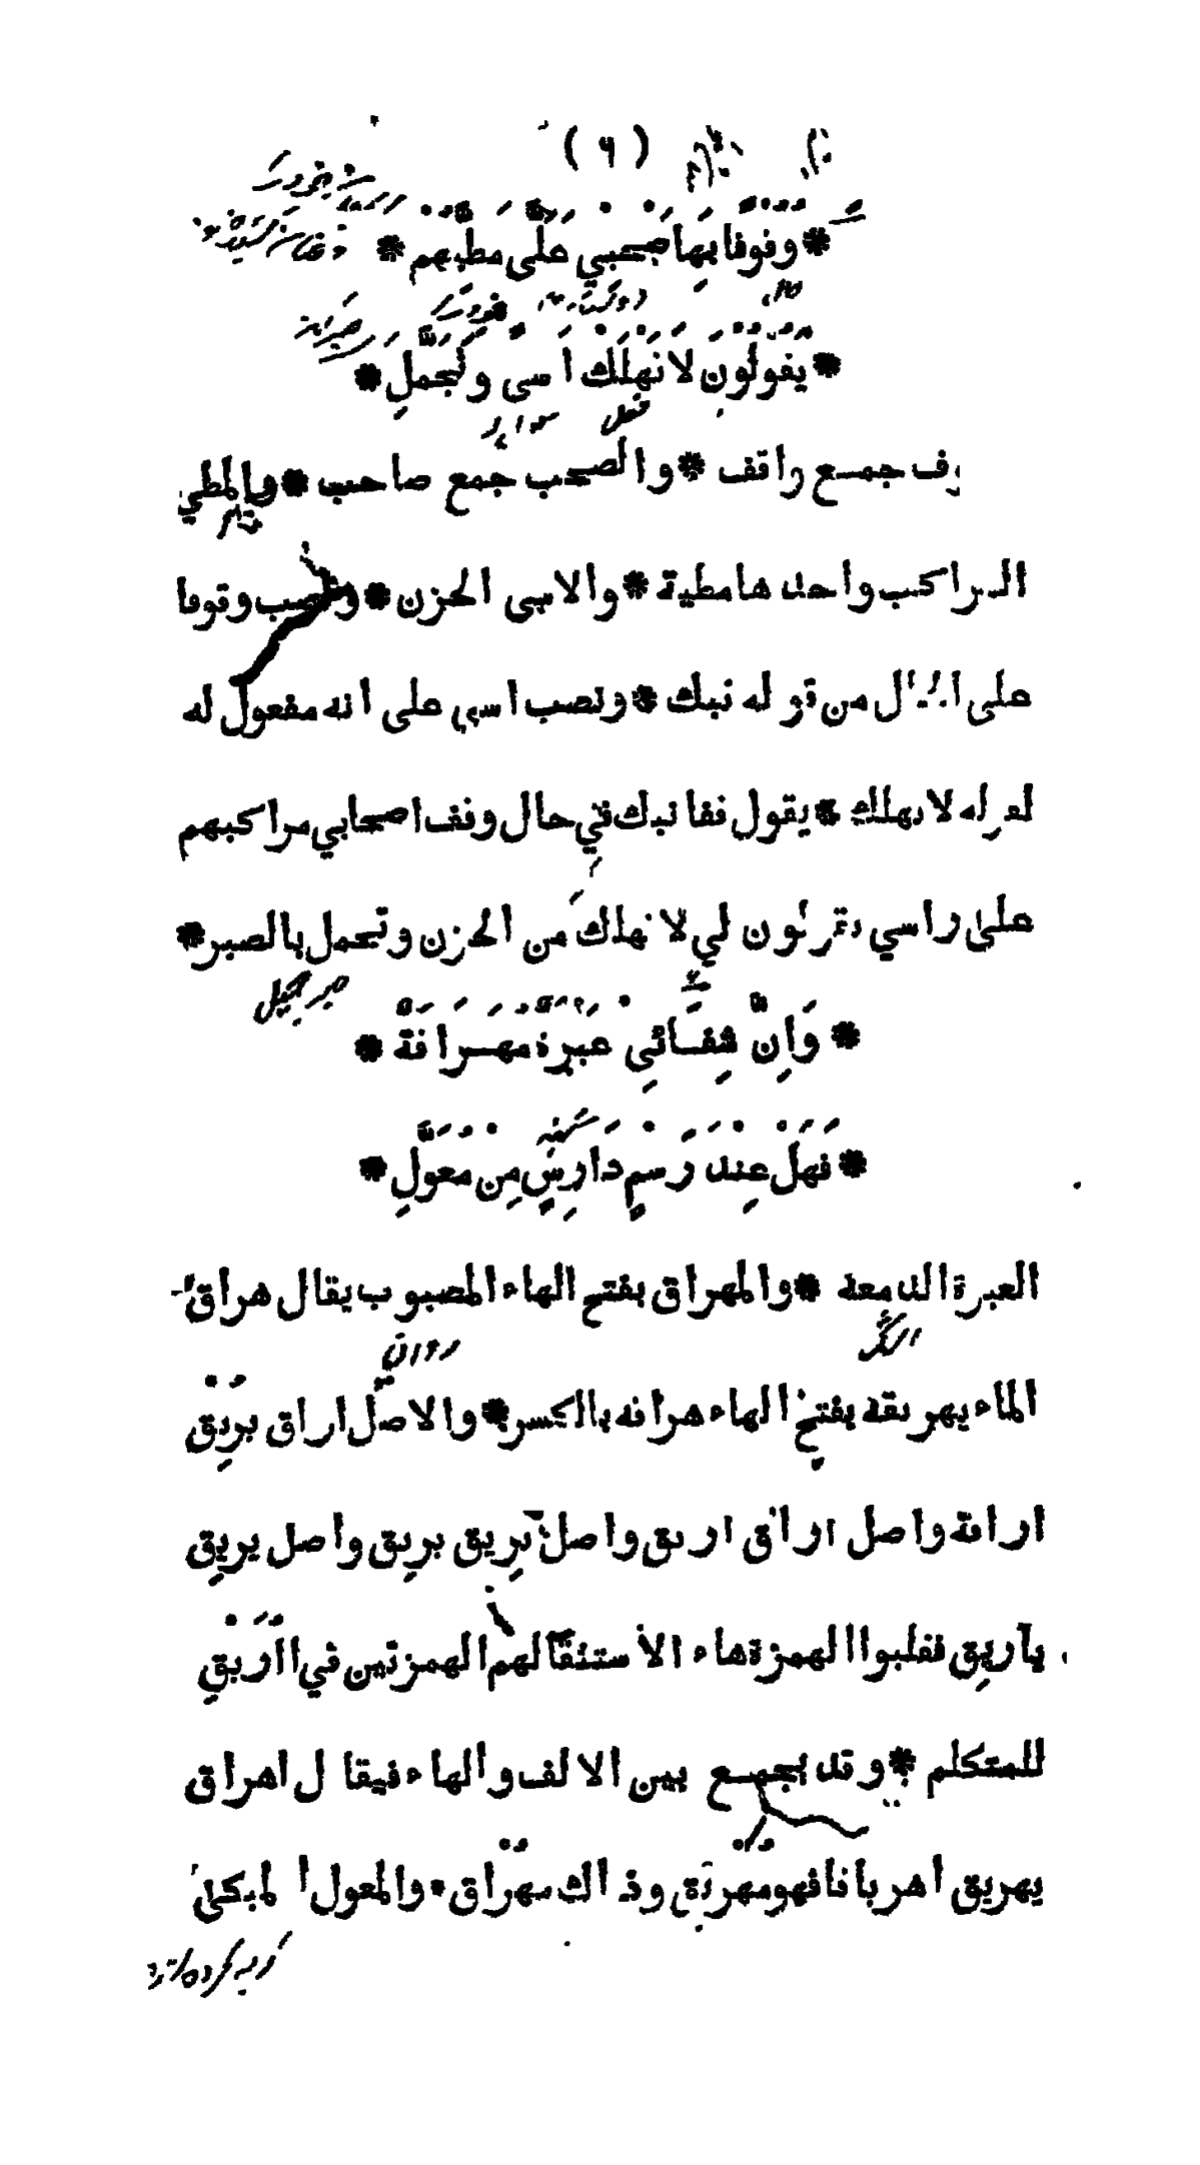 ( ٦ )
* وُقُوْفًا بِهَا صَحْبِي عَلَيَّ مَطِيَّهُمْ *
* يَقُوْلُوْنَ لَا تَهْلِكْ اَسًى وَتَجَمَّلِ *
وف جمع واقف * والصحب جمع صاحب * والمطي
المراكب واحدها مطية * والاسى الحزن * ونصب وقوفا
على الحال من قوله نبك * ونصب اسى على انه مفعول له
لقوله لا تهلك * يقول قفا نبك في حال وقف اصحابي مراكبهم
على راسي يقولون لي لا تهلك من الحزن وتجمل بالصبر *
* وَاِنَّ شِفَائِي عَبْرَةٌ مُهَرَاقَةٌ *
* فَهَلْ عِنْدَ رَسْمٍ دَارِسٍ مِنْ مُعَوَّلِ *
العبرة الدمعة * والمهراق بفتح الهاء المصبوب يقال هراق
الماء يهريقه بفتح الهاء هراقه بالكسر * والاصل اراق يريق
اراقة واصل اراق اريق واصل يريق يريق واصل يريق
يأريق فقلبوا الهمزة هاء الاستثقالهم الهمزتين في اأريق
للمتكلم * وقد يجمع بين الالف والهاء فيقال اهراق
يهريق اهرياقا فهو مهريق وذاك مهراق * والمعول المبكى